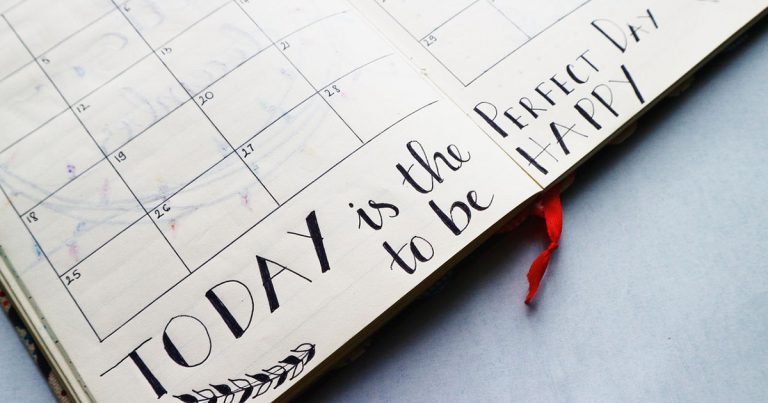 5
12 13
18 19 20 21
25 26 27 28
29
TODAY is the PERFECT DAY
to be HAPPY